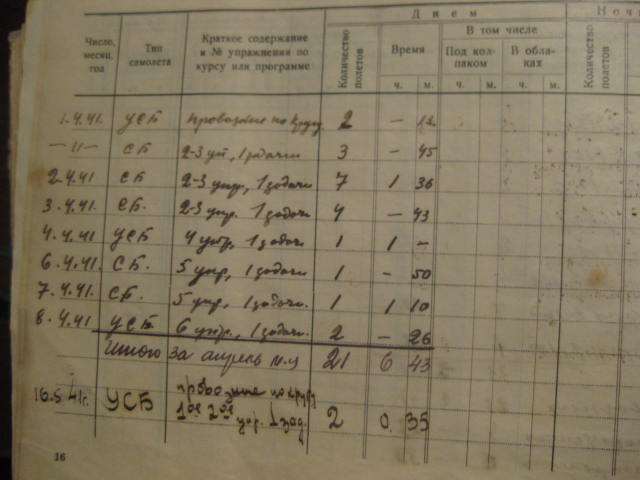 Днем
Ноч
Число, месяц, год
Тип самолета
Краткое содержание и № упражнения по курсу или программе
Количество полетов
Время
В том числе
Под колпаком
В облаках
Количество полетов
ч. м. ч. м. ч. м.
1.4.41. УСБ провозные по кругу 2 – 12
–〃– СБ 2-3 уп, 1 задачи 3 – 45
2.4.41 СБ 2-3 упр, 1 задачи 7 1 36
3.4.41. СБ. 2-3 упр. 1 задачи 4 – 43
4.4.41 УСБ 4 упр, 1 задачи 1 1 –
6.4.41. СБ. 5 упр, 1 задачи 1 – 50
7.4.41. СБ. 5 упр, 1 задачи. 1 1 10
8.4.41 УСБ 6 упр., 1 задачи. 2 – 26
Итого за апрель м-ц 21 6 43
16.5.41г. УСБ провозные по кругу
1ое 2ое упр. 1 зад. 2 0. 35
16